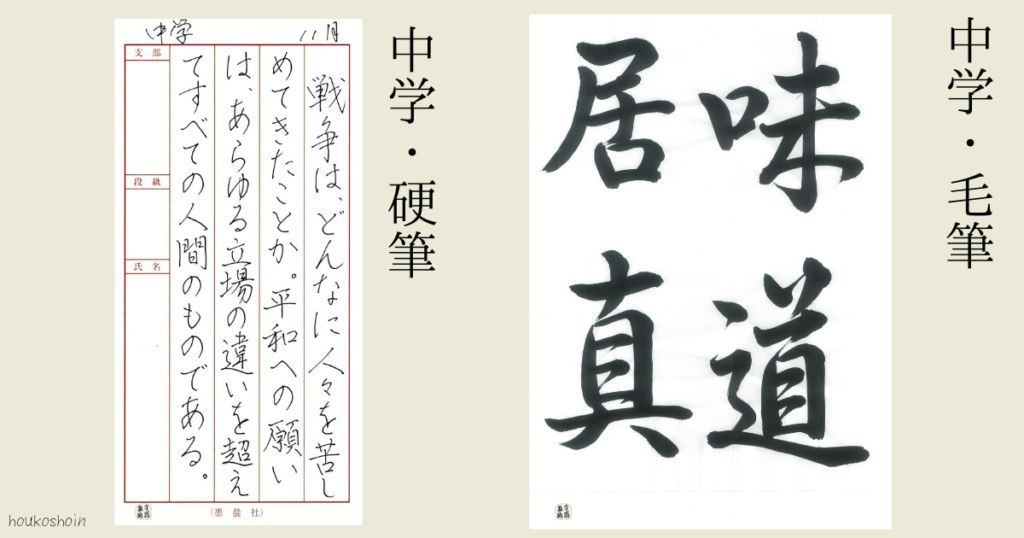 中学・毛筆
味道
居真
中学・硬筆
中学 11月
戦争は、どんなに人々を苦し
めてきたことか。平和への願い
は、あらゆる立場の違いを超え
てすべての人間のものである。
支部
段級
氏名
(墨晨社)
houkoshoin